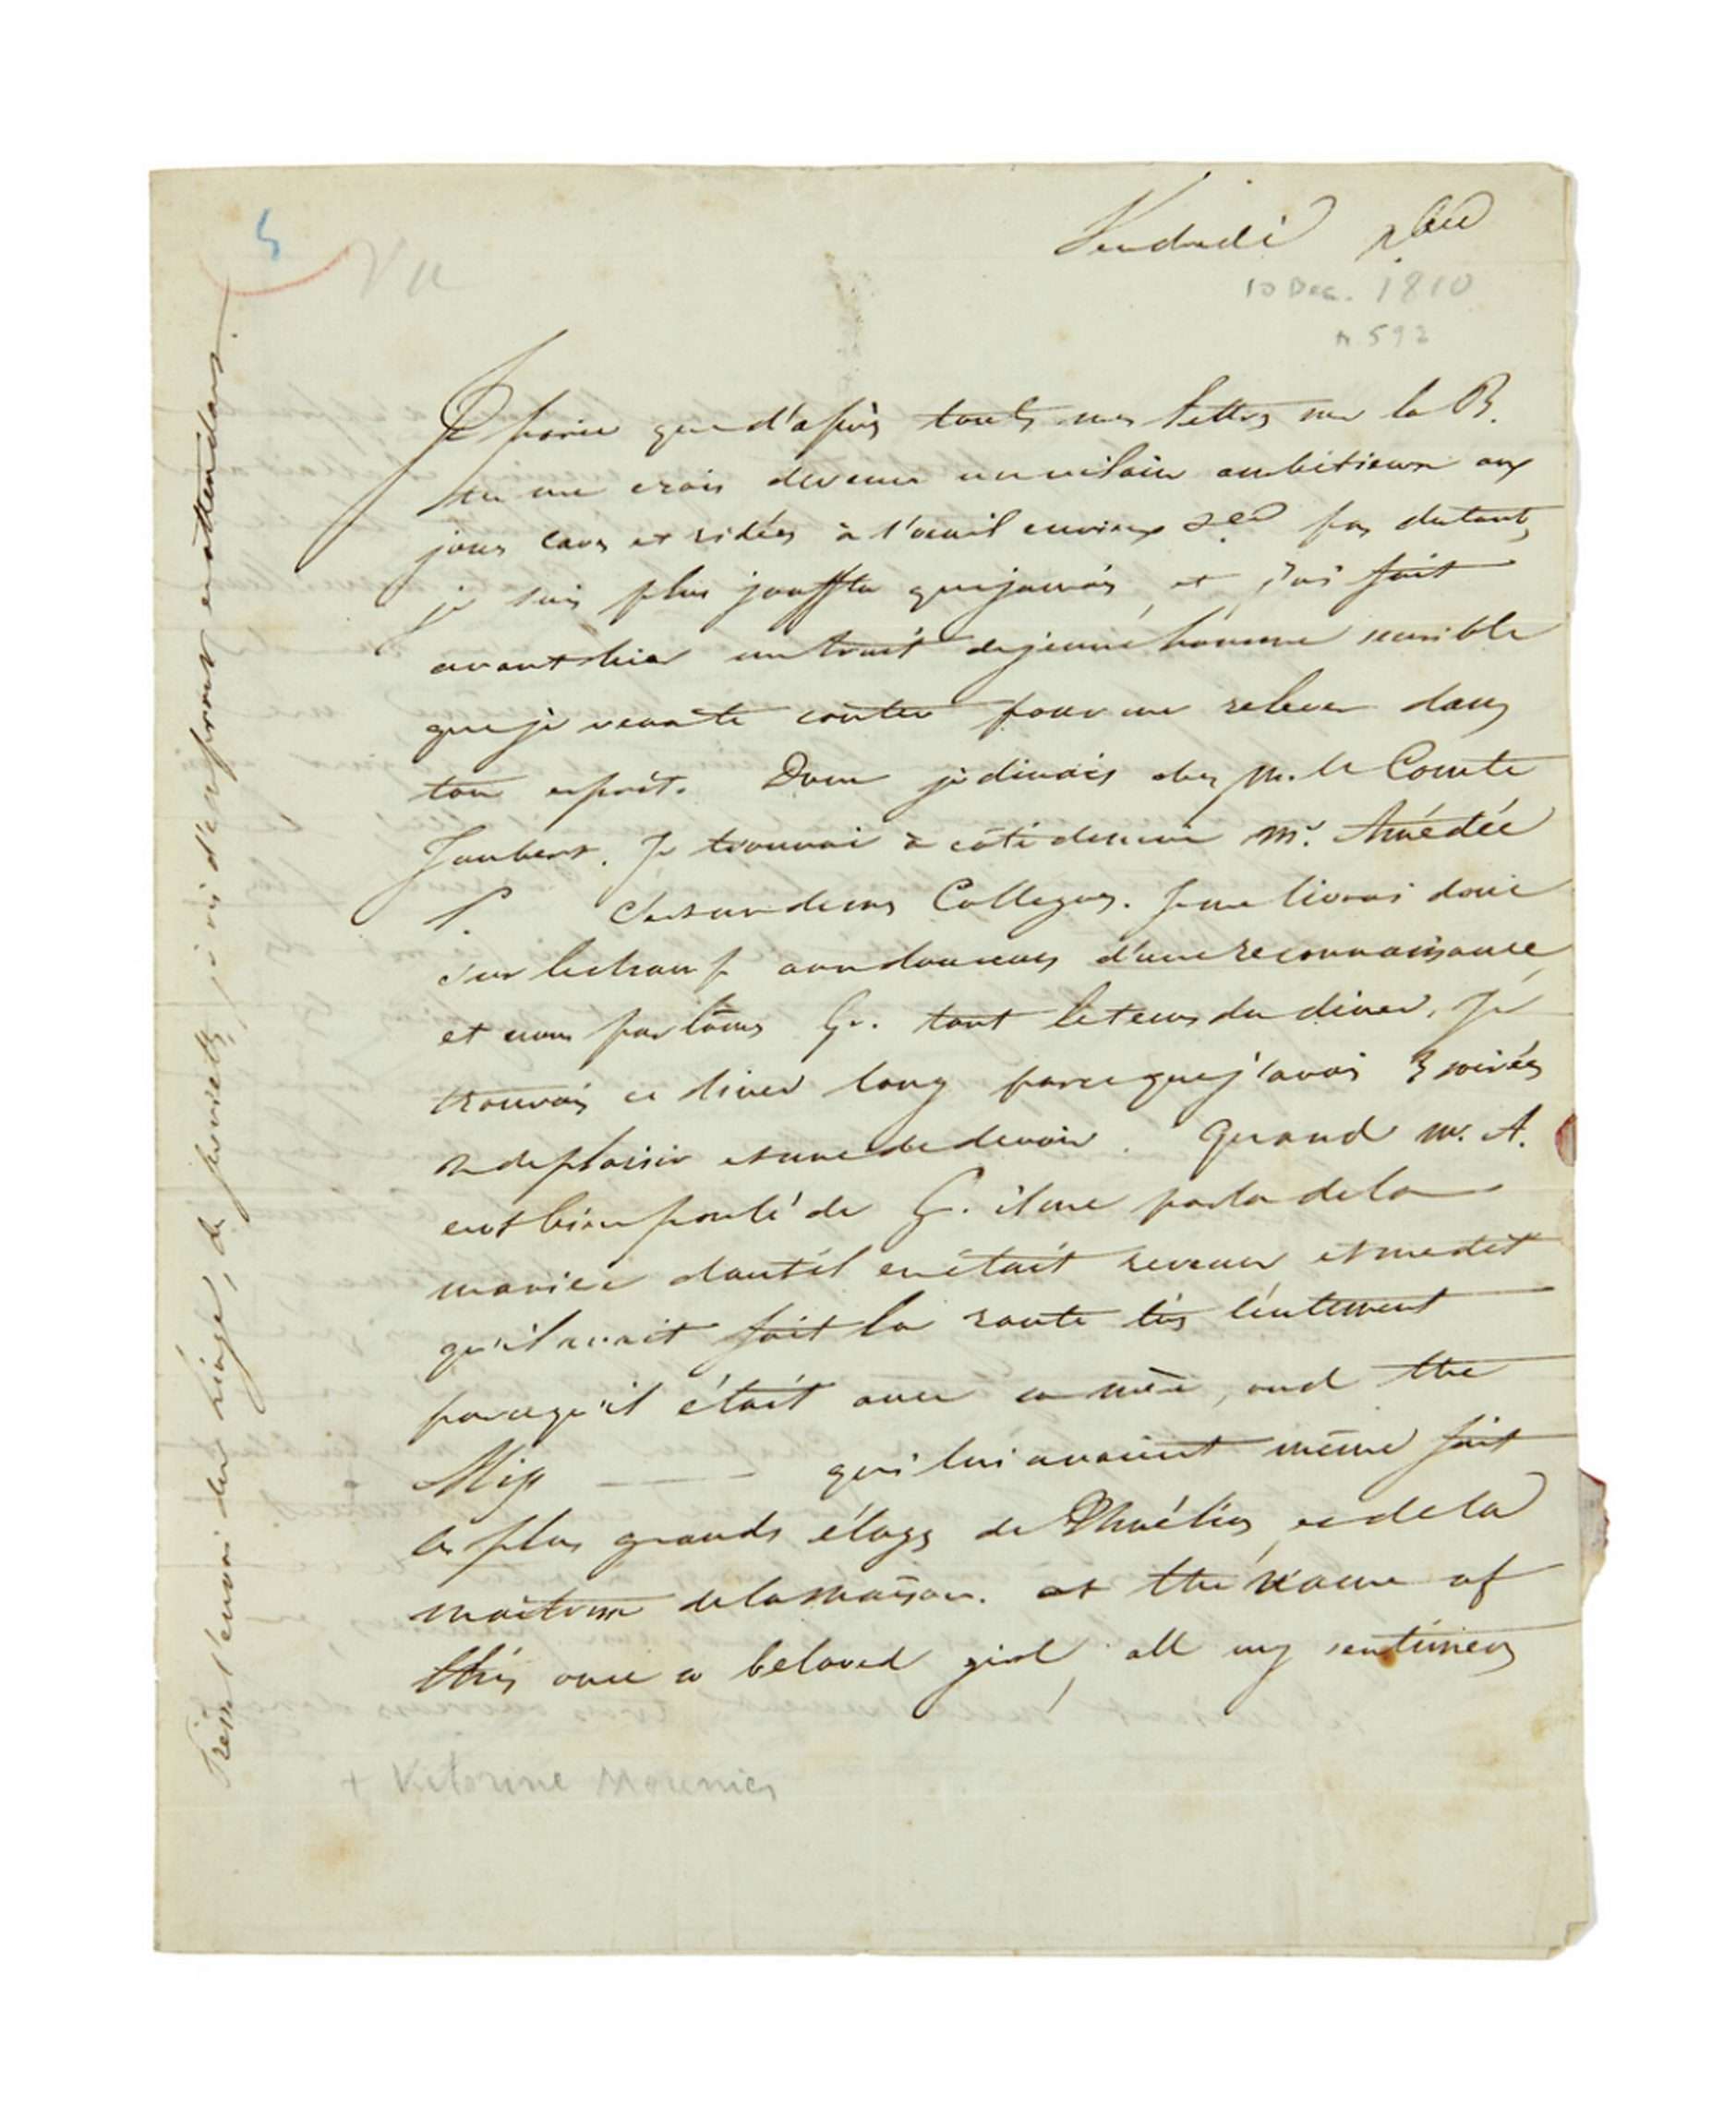 5
Vu
Vendredi xbre
10 Dec. 1810
n. 592
Je parie que d'après toutes mes lettres sur la B.
tu me crois devenu un vilain ambitieux aux
joues caves et ridées à l'œuil envieux &ca pas du tout,
je suis plus joufflu que jamais, et j'ai fait
avant hier un trait de jeune homme sensible
que je veux te conter pour me relever dans
ton esprit. Donc je dinais chez M. le Comte
Joubert. Je trouvai à côté de moi Mr. Amédée
P. C'est un de mes Collegues. Je me livrai donc
sur le champ aux douceurs d'une reconnaissance
et nous parlâmes Gr. tout le tems du diner. Je
trouvais ce diner long parce que j'avais 3 soirées
2 de plaisir et une de devoir. Quand M. A.
eut bien parlé de G. il me parla de la
manière dont il en était revenu et me dit
qu'il avait fait la route très lentement
parce qu'il était avec sa mère, and the
Miss — — — qui lui avaient même fait
les plus grands éloges de et de la
maitresse de la maison. at the name of
this once so beloved girl, all my sentimens
+ Victorine Mounier
Presse l'envoi du linge, de serviettes, je vis d'emprunt en attendant.